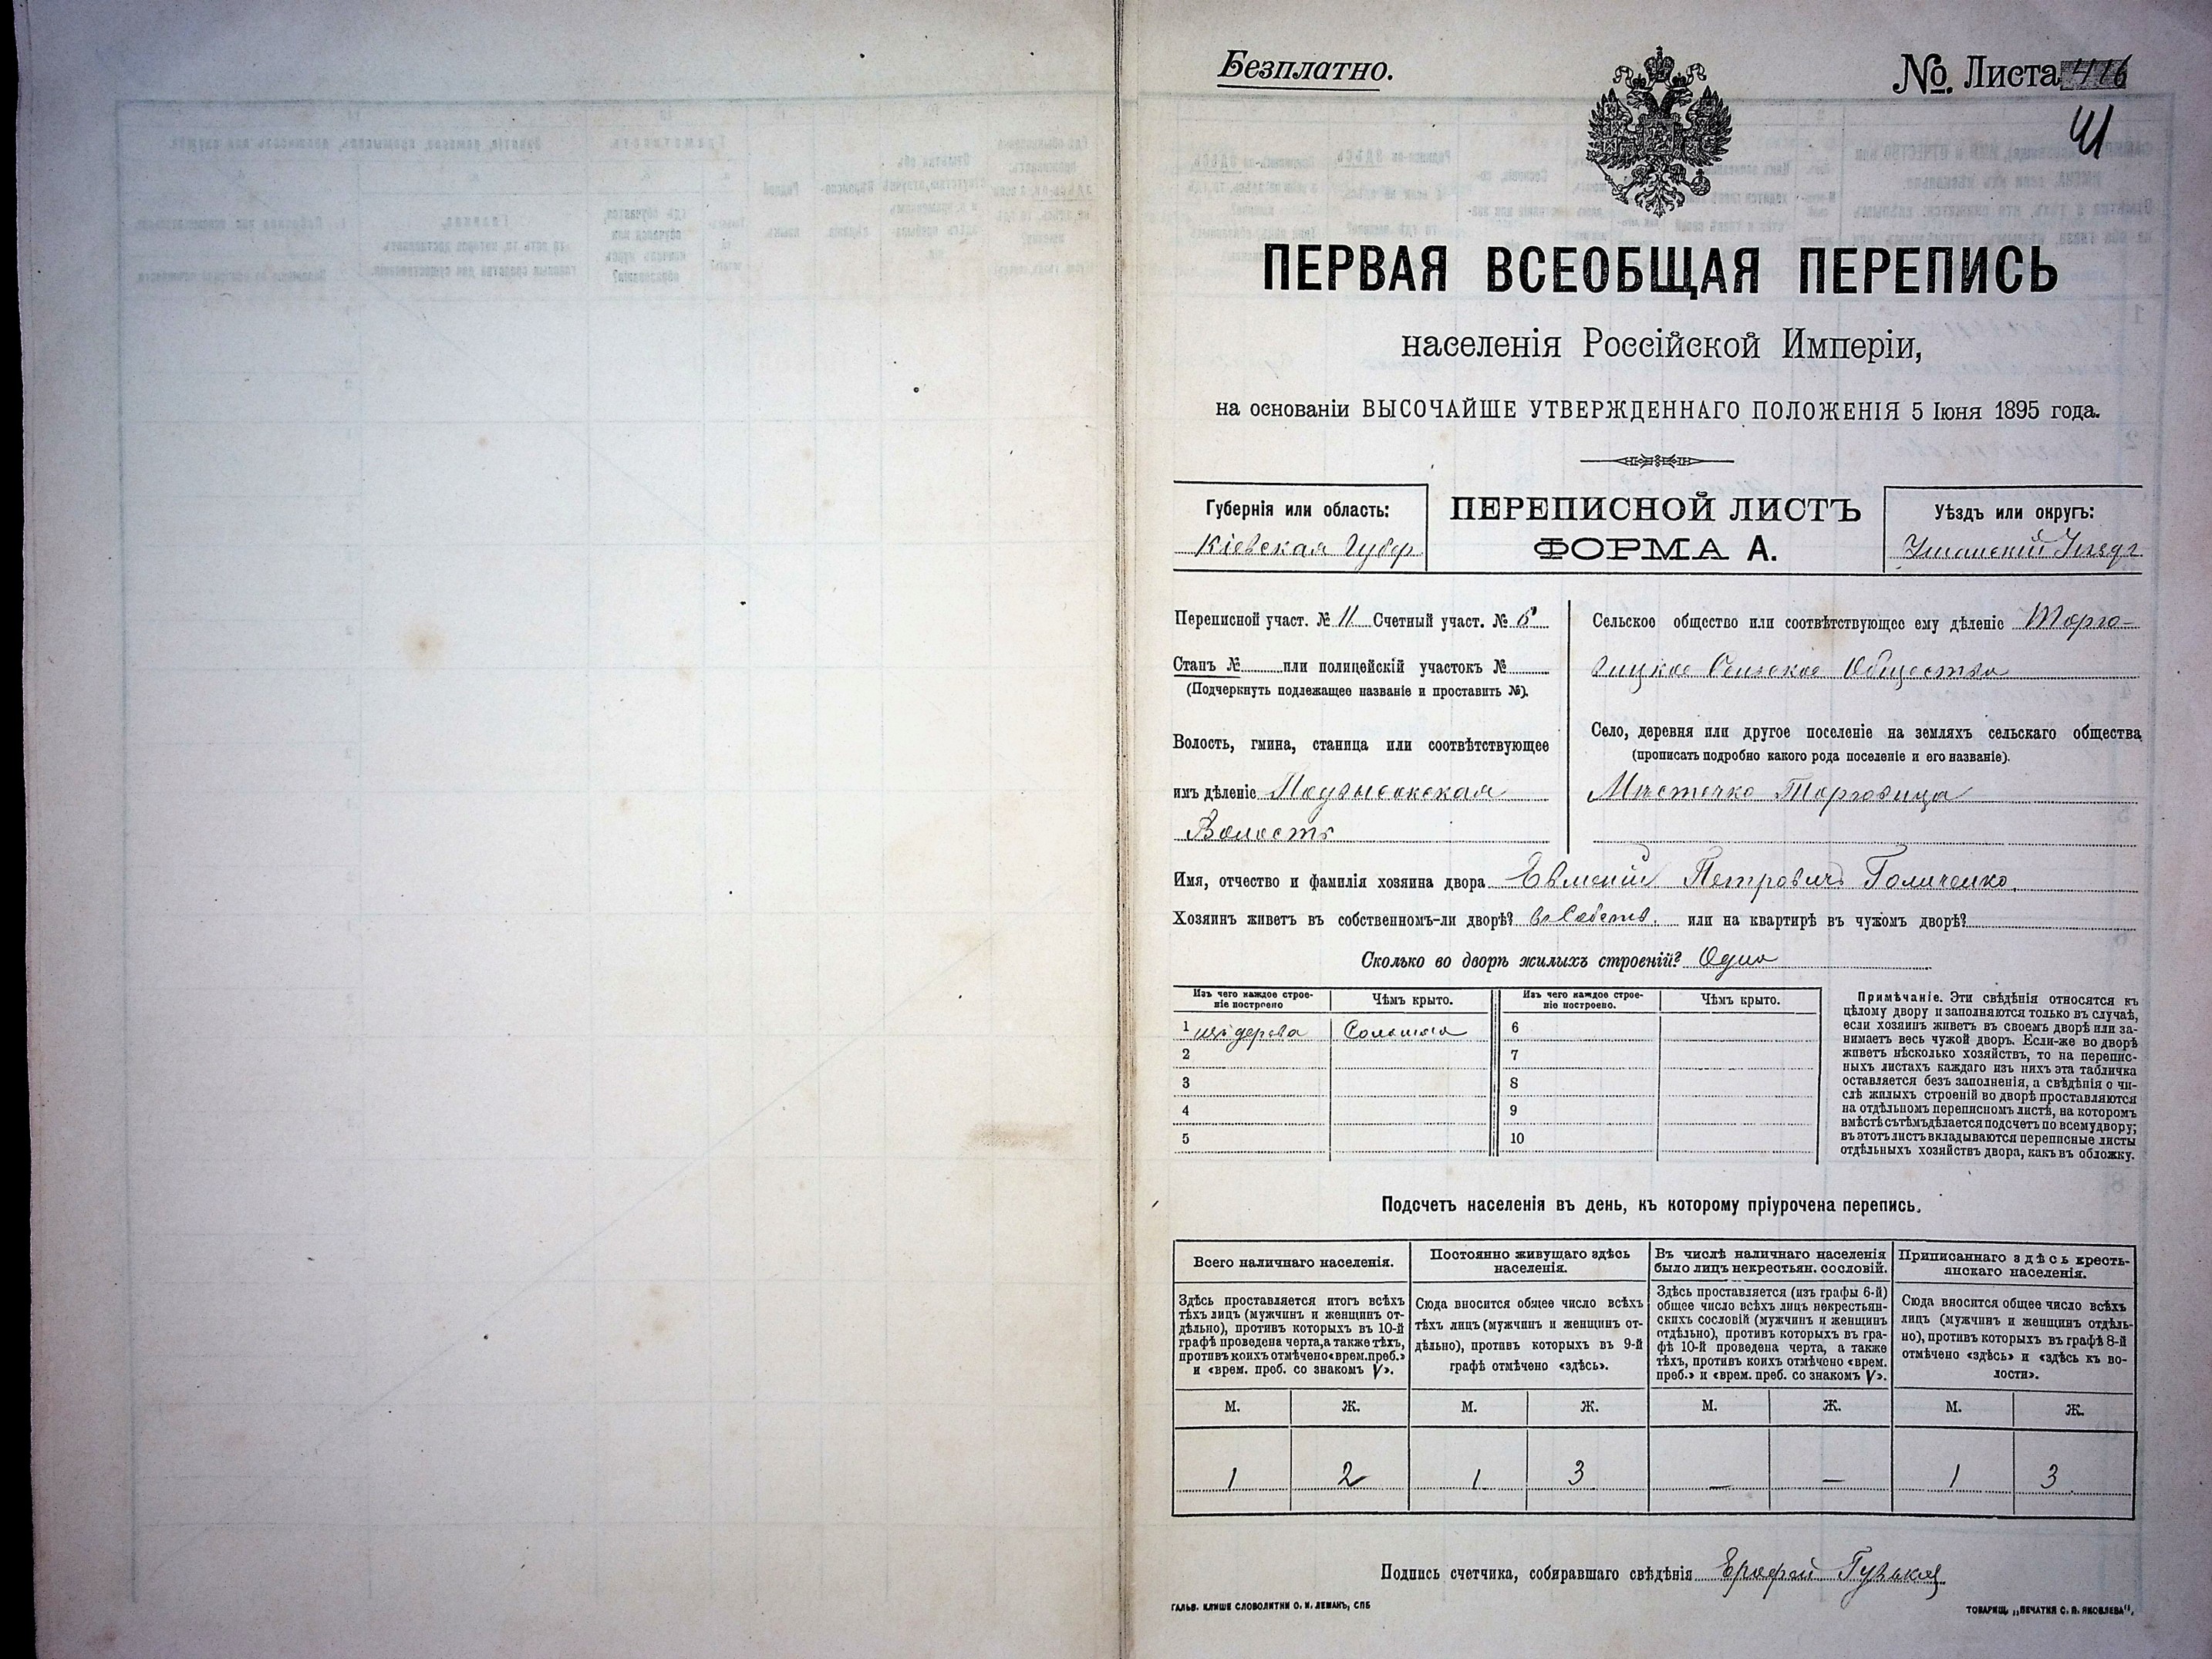 Безплатно.
№. Листа 416
41
ПЕРВАЯ ВСЕОБЩАЯ ПЕРЕПИСЬ
населенія Россійской Имперіи,
на основаніи ВЫСОЧАЙШЕ УТВЕРЖДЕННАГО ПОЛОЖЕНІЯ 5 Іюня 1895 года.
Губернія или область:
Кіевская Губер
ПЕРЕПИСНОЙ ЛИСТЪ
ФОРМА А.
Уѣздъ или округъ:
Уманскій Уѣздъ
Переписной участ. № 11 Счетный участ. №
Станъ № или полицейскій участокъ №
(Подчеркнуть подлежащее названіе и проставить №).
Волость, гмина, станица или соотвѣтствующее
имъ дѣленіе Подвысокская
Волость
Сельское общество или соотвѣтствующее ему дѣленіе Торго-
вицкое Сельское Общество
Село, деревня или другое поселеніе на земляхъ сельскаго общества
(прописать подробно какого рода поселеніе и его названіе).
Мѣстечко Торговица
Имя, отчество и фамилія хозяина двора Евменій Петровичъ Голиченко.
Хозяинъ живетъ въ собственномъ-ли дворѣ? въ Собств. или на квартирѣ въ чужомъ дворѣ?
Сколько во дворѣ жилыхъ строеній? Одно
Изъ чего каждое строе-
ніе построено
Чѣмъ крыто.
Изъ чего каждое строе-
ніе построено.
Чѣмъ крыто.
1 изъ дерева Соломою 6
2 7
3 8
4 9
5 10
Примѣчаніе. Эти свѣдѣнія относятся къ
цѣлому двору и заполняются только въ случаѣ,
если хозяинъ живетъ въ своемъ дворѣ или за-
нимаетъ весь чужой дворъ. Если-же во дворѣ
живетъ нѣсколько хозяйствъ, то на перепис-
ныхъ листахъ каждаго изъ нихъ эта табличка
оставляется безъ заполненія, а свѣдѣнія о чи-
слѣ жилыхъ строеній во дворѣ проставляются
на отдѣльномъ переписномъ листѣ, на которомъ
вмѣстѣ съ тѣмъ дѣлается подсчетъ по всему двору;
въ этотъ листъ вкладываются переписные листы
отдѣльныхъ хозяйствъ двора, какъ въ обложку.
Подсчетъ населенія въ день, къ которому пріурочена перепись.
Всего наличнаго населенія.
Здѣсь проставляется итогъ всѣхъ
тѣхъ лицъ (мужчинъ и женщинъ от-
дѣльно), противъ которыхъ въ 10-й
графѣ проведена черта, а также тѣхъ,
противъ коихъ отмѣчено «врем. преб.»
и «врем. преб. со знакомъ V».
Постоянно живущаго здѣсь
населенія.
Сюда вносится общее число всѣхъ
тѣхъ лицъ (мужчинъ и женщинъ от-
дѣльно), противъ которыхъ въ 9-й
графѣ отмѣчено «здѣсь».
Въ числѣ наличнаго населенія
было лицъ некрестьян. сословій.
Здѣсь проставляется (изъ графы 6-й)
общее число всѣхъ лицъ некрестьян-
скихъ сословій (мужчинъ и женщинъ
отдѣльно), противъ которыхъ въ гра-
фѣ 10-й проведена черта, а также
тѣхъ, противъ коихъ отмѣчено «врем.
преб.» и «врем. преб. со знакомъ V».
Приписаннаго здѣсь кресть-
янскаго населенія.
Сюда вносится общее число всѣхъ
лицъ (мужчинъ и женщинъ отдѣль-
но), противъ которыхъ въ графѣ 8-й
отмѣчено «здѣсь» и «здѣсь къ во-
лости».
М. Ж. М. Ж. М. Ж. М. Ж.
1 2 1 3 — — 1 3
Подпись счетчика, собиравшаго свѣдѣнія Ерофей
ГАЛЬВ. КЛИШЕ СЛОВОЛИТНИ О. И. ЛЕМАНЪ, СПБ
ТОВАРИЩ. „ПЕЧАТНЯ С. П. ЯКОВЛЕВА".